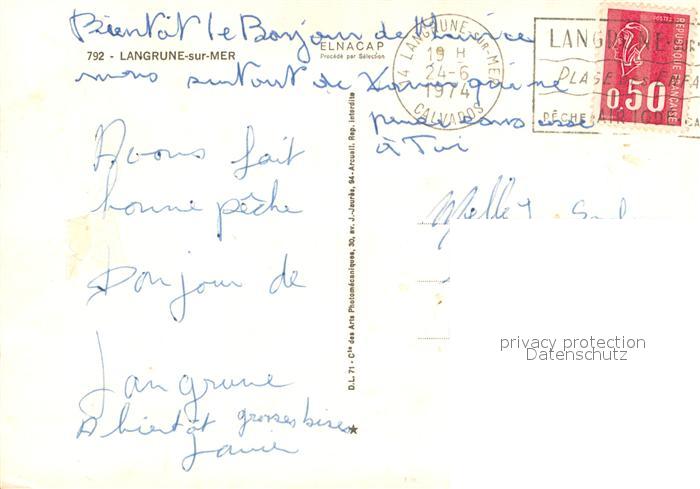 Bientôt le Bonjour de Maurice
792 - LANGRUNE-sur-MER
ELNACAP
Procédé par Sélection
mais surtout de Xavier qui ne
pense sans cesse
à Toi
Avons fait
bonne pêche
Bonjour de
Langrune
A bientôt grosses bises
Xavier
D.L. 71 - Cie des Arts Photomécaniques, 30, av. J.-Jaurès, 94-Arcueil. Rep. interdite
14 LANGRUNE-sur-MER
19 H
24-6
1974
CALVADOS
LANGRUNE
PLAGE
PÊCHE
POSTES
REPUBLIQUE FRANÇAISE
0,50
privacy protection
Datenschutz